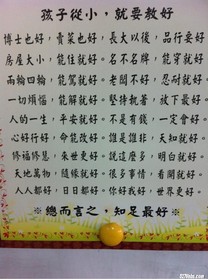 孩子從小，就要教好
博士也好，賣菜也好，長大以後，品行要好
房屋大小，能住就好。名不名牌，能穿就好。
兩輪四輪，能駕就好。老闆不好，忍耐就好。
一切煩惱，能解就好。堅持執著，放下最好。
人的一生，平安就好。不是有錢，一定會好。
心好行好，命能改好。誰是誰非，天知就好。
修福修慧，來世更好。說這麼多，明白就好。
天地萬物，隨緣就好。很多事情，看開就好。
人人都好，日日都好。你好我好，世界更好。
※總而言之，知足最好※